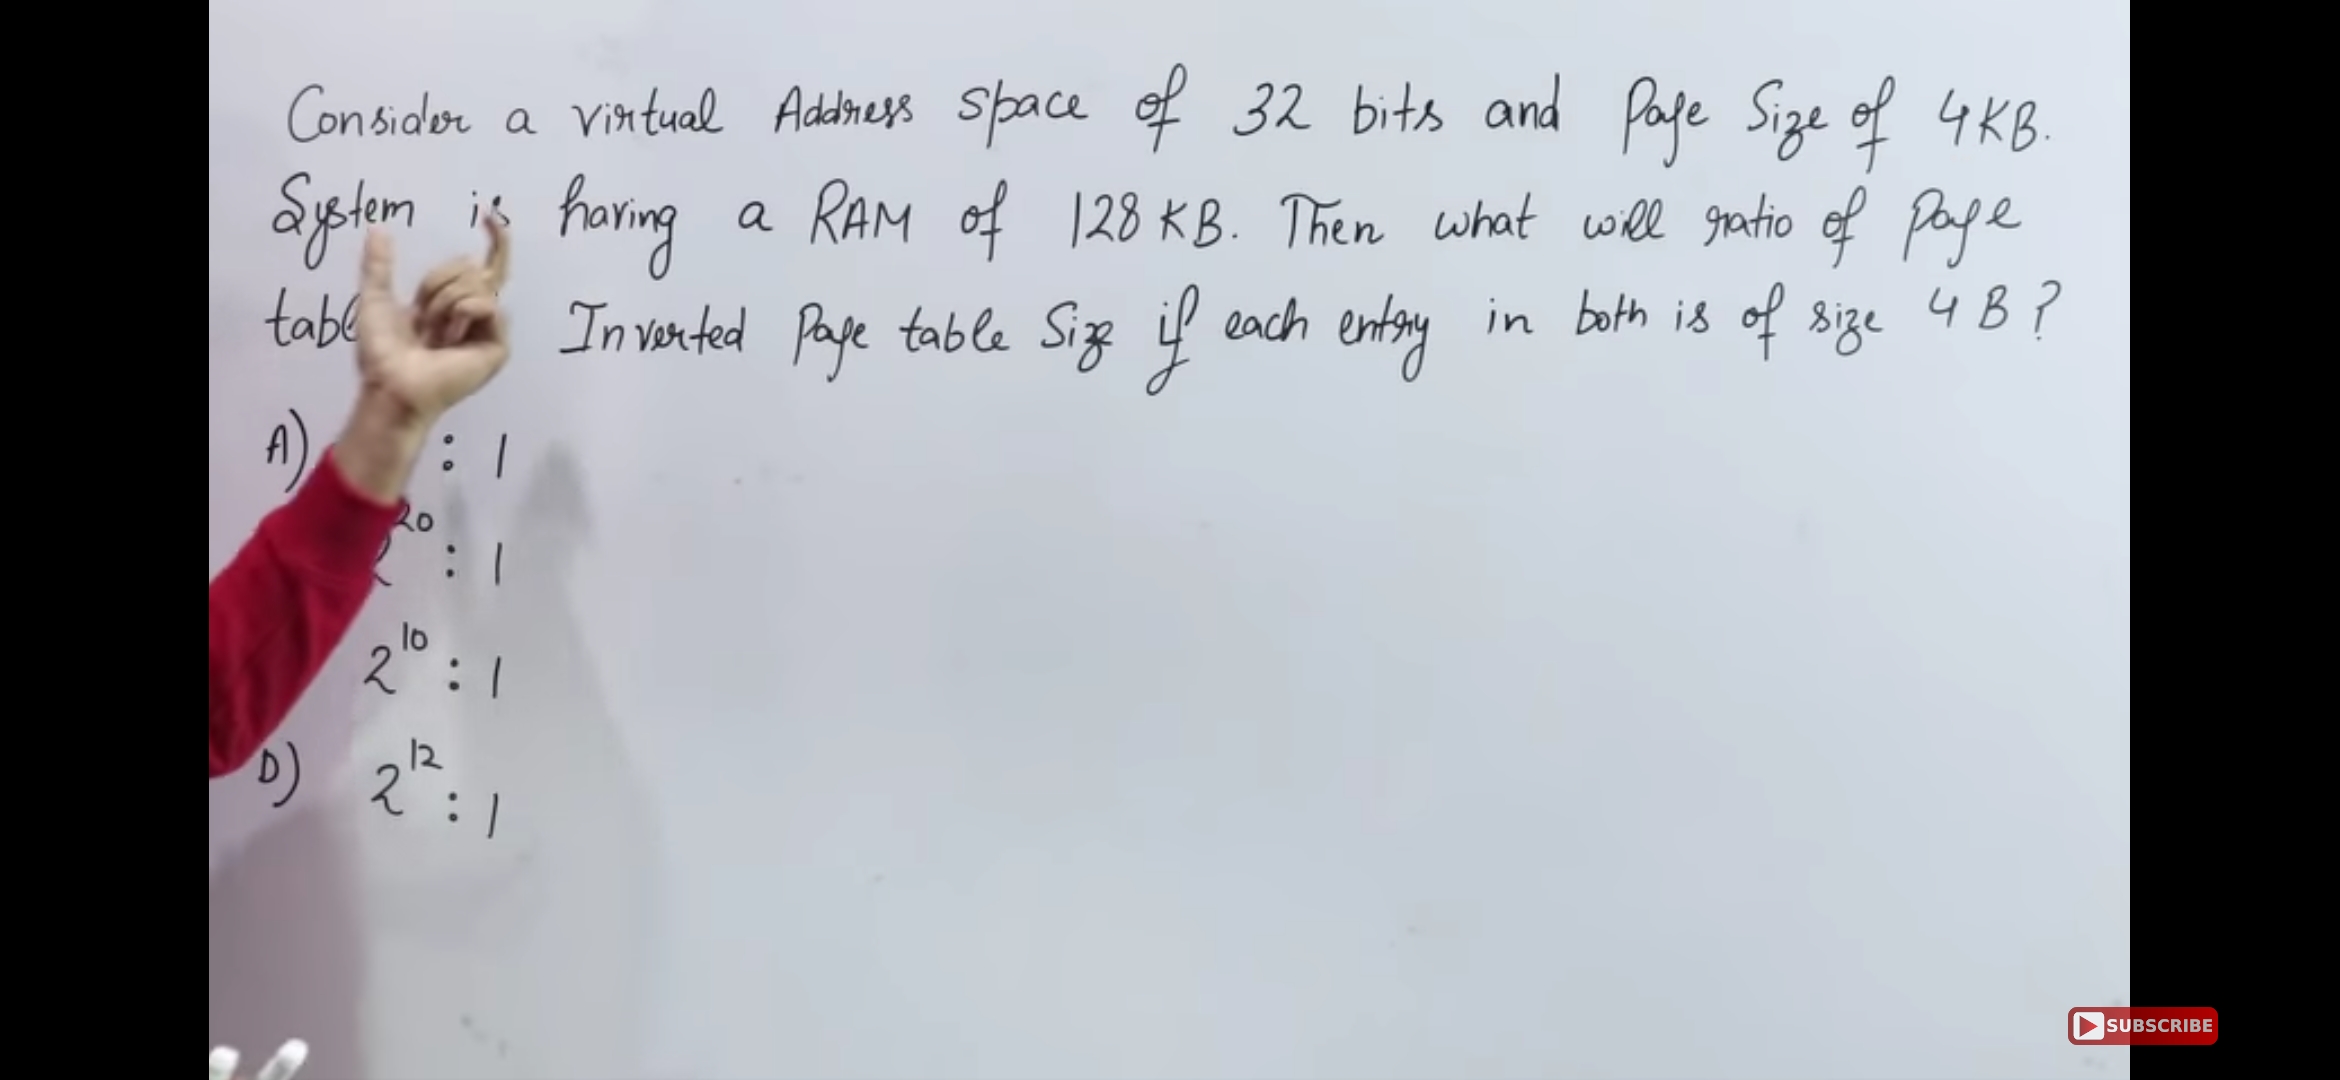 Consider a virtual Address space of 32 bits and Page Size of 4KB.
System is having a RAM of 128 KB. Then what will ratio of Page
Inverted Page table Size if each entry in both is of size 4 B?
A) : 1
20 : 1
2^10 : 1
D) 2^12 : 1
SUBSCRIBE